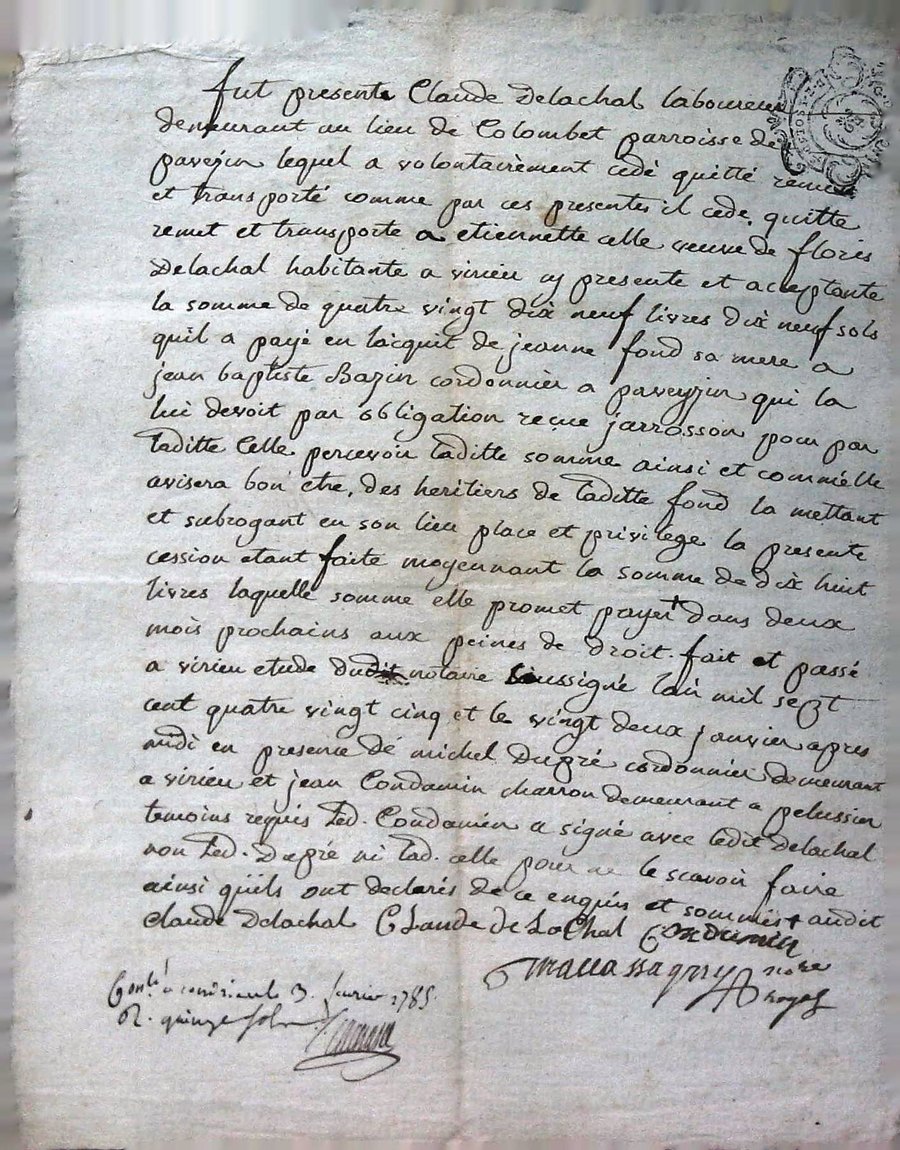 fut present Claude Delachal laboureur
demeurant au lieu de Colombet parroisse de
pavezin lequel a volontairement cedé quitté remis
et transporté comme par ces presentes il cede quitte
remet et transporte a etiennette celle veuve de floris
Delachal habitante a virieu cy presente et acceptante
la somme de quatre vingt dix neuf livres dix neuf sols
quil a payé en lacquit de jeanne fond sa mere a
jean baptiste Bazin cordonnier a paveyzin qui la
lui devoit par obligation reçue jarrosson pour par
laditte Celle percevoir laditte somme ainsi et comme elle
avisera bon etre, des heritiers de laditte fond la mettant
et subrogant en son lieu place et privilege la presente
cession etant faite moyennant la somme de dix huit
livres laquelle somme elle promet payer + dans deux
mois prochains aux peines de droit. fait et passé
a virieu etude dudit notaire soussigné lan mil sept
cent quatre vingt cinq et le vingt deux janvier apres
midi en presence de michel Dupré cordonnier demeurant
a virieu et jean Condamin charron demeurant a pelussien
temoins requis led. Condamin a signé avec ledit delachal
non led. Dupré ni lad. celle pour ne le scavoir faire
ainsi qu'ils ont declarés de ce enquis et sommés + audit
claude Delachal CLaude de LaChal Condamin
notre
royal
Conlé a condrieu le 3. fevrier 1785.
R. quinze sols